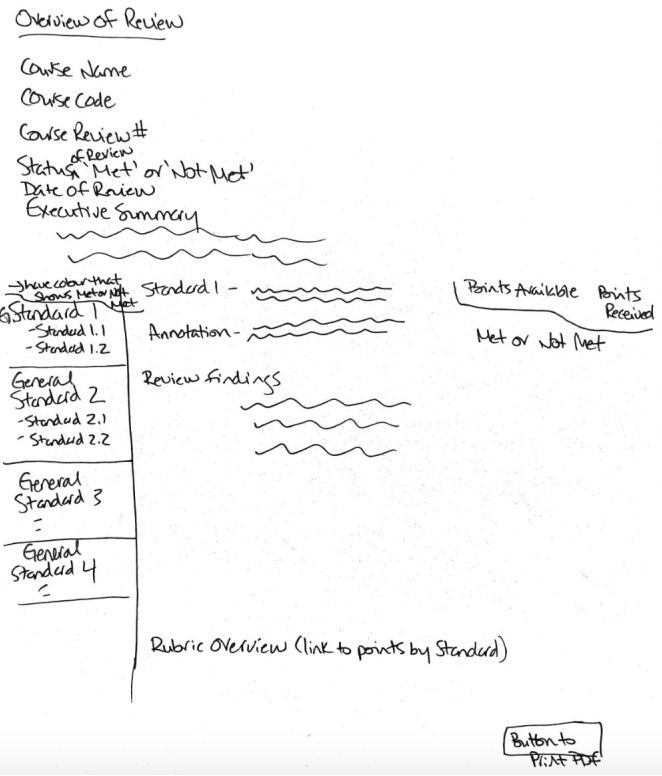 Overview of Review
Course Name
Course Code
Course Review #
Status of Review 'Met' or 'Not Met'
Date of Review
Executive Summary
→ have colour that
shows Met or Not
Met
G Standard 1
- Standard 1.1
- Standard 1.2
General
Standard 2
- Standard 2.1
- Standard 2.2
General
Standard 3
General
Standard 4
Standard 1 -
Annotation -
Review findings
Points Available Points
Received
Met or Not Met
Rubric Overview (link to points by Standard)
Button to
Print PDF